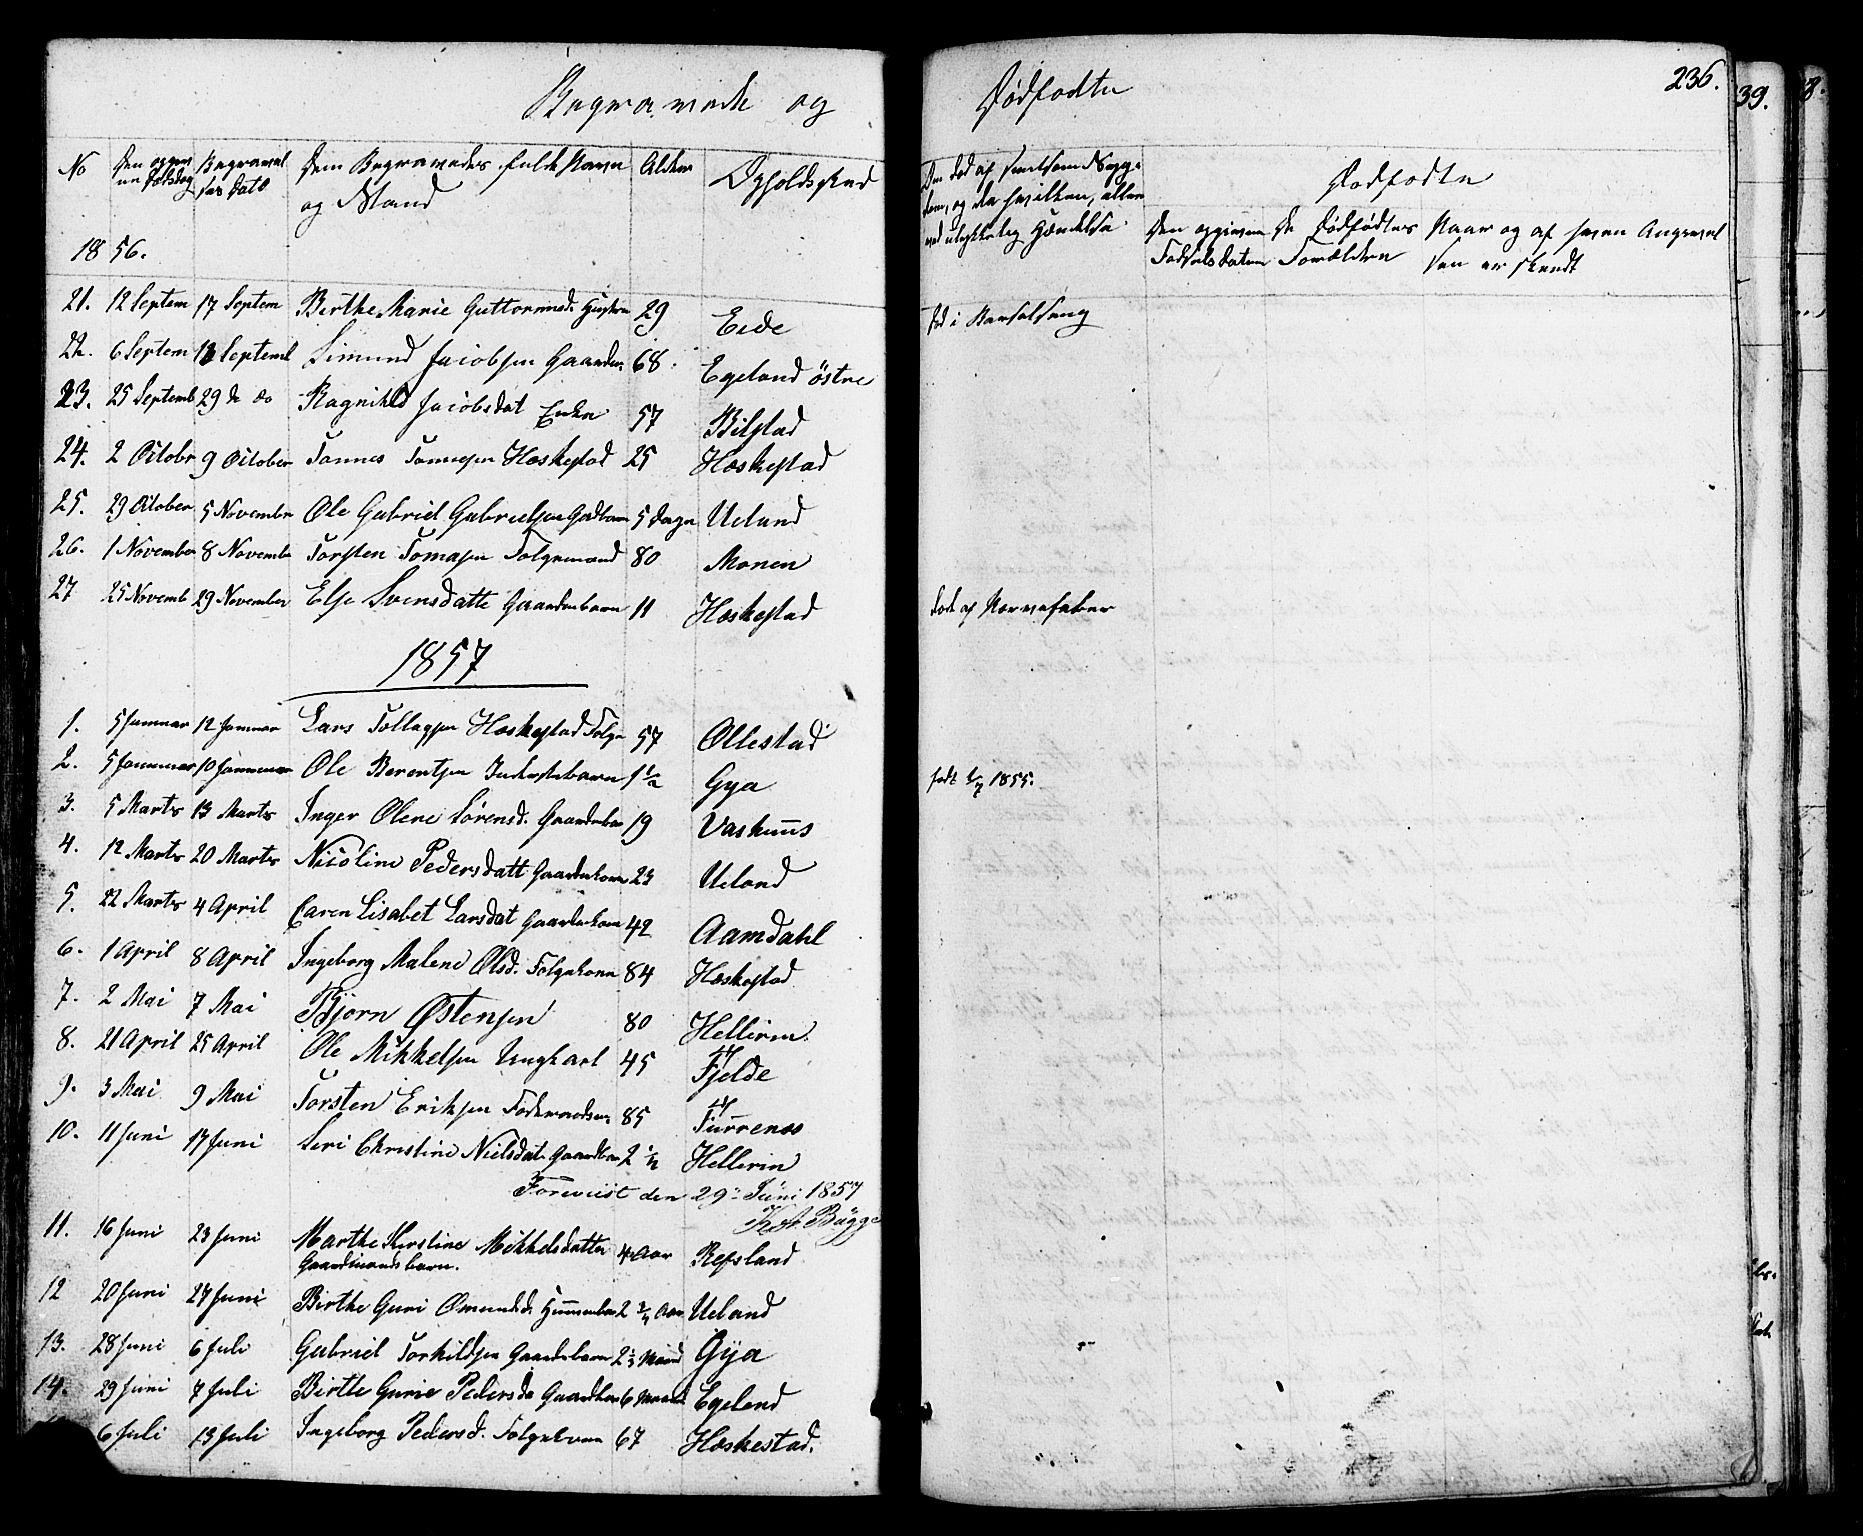 Begravede og
Dødfødte
236.
39.
No
Den opgivne Dødsdag
Begravelses Dato
Den Begravedes fulde Navn og Stand
Alder
Opholdssted
Død af smitsom Sygdom, og da hvilken, eller ved ulykkelig Hændelse
Dødfødte
Den opgivne Fødselsdatum
De Dødfødtes Forældre
Naar og af hvem Angivelsen er skeedt
1856.
21. 12 Septem 17 Septem Birthe Marie Guttormsd. Hustru 29 Eide Død i Barselseng
22. 6 Septem 13 Septemb Simund Jacobsen Gaardm. 68. Egeland østre
23. 25 Septemb 29 de do Ragnild Jacobsdat Enke 57 Bilstad
24. 2 Octobr 9 October Tønnes Tønnesen Hæskestad 25 Hæskestad
25. 29 October 5 Novembr Ole Gabriel Gabrielsen 5 dage Ueland
26. 1 November 8 Novembr Torsten Tomasen Folgemand 80 Monen
27 25 Novemb 29 November Else Svensdatte Gaardmbarn 11 Hæskestad død af Nervefeber
1857
1. 5 Januar 12 Januar Lars Tollagsen Hæskestad Folge 57 Ollestad
2. 5 Januar 10 Januar Ole Berentsen Inderstebarn 1 1/2 Gya født 1/7 1855.
3. 5 Marts 13 Marts Inger Olene Sørensd. Gaardmbar 19 Vashuus
4. 12 Marts 20 Marts Nicoline Pedersdatt Gaardmkone 23 Ueland
5. 22 Marts 4 April Caren Lisabet Larsdat Gaardmkone 42 Aamdahl
6. 1 April 8 April Ingeborg Malene Olsd. Folgekone 84 Hæskestad
7. 2 Mai 7 Mai Bjørn Østensen 80 Helleren.
8. 21 April 25 April Ole Mikkelsen Ungkarl 45 Fjelde
9. 3 Mai 9 Mai Torsten Eriksen 85
10. 11 Juni 17 Juni Seri Christine Nielsdat Gaardbar 2 1/2 Hellerin
Foreviist den 29de Juni 1857
11. 16 Juni 23 Juni Marthe Kirstine Mikkelsdatter 4 Aar Refsland
Gaardmands barn.
12 20 Juni 27 Juni Birthe Guri Omundsd. 2 3/4 Aar Ueland
13. 28 Juni 6 Juli Gabriel Torkildsen Gaardmbarn 2 1/2 Maand Gya
14. 29 Juni 7 Juli Birtle Gurie Pedersd Gaardbar 6 Maaned Egeland
6 Juli 13 Juli Ingeborg Pedersd. Folgekone 67 Hæskestad.